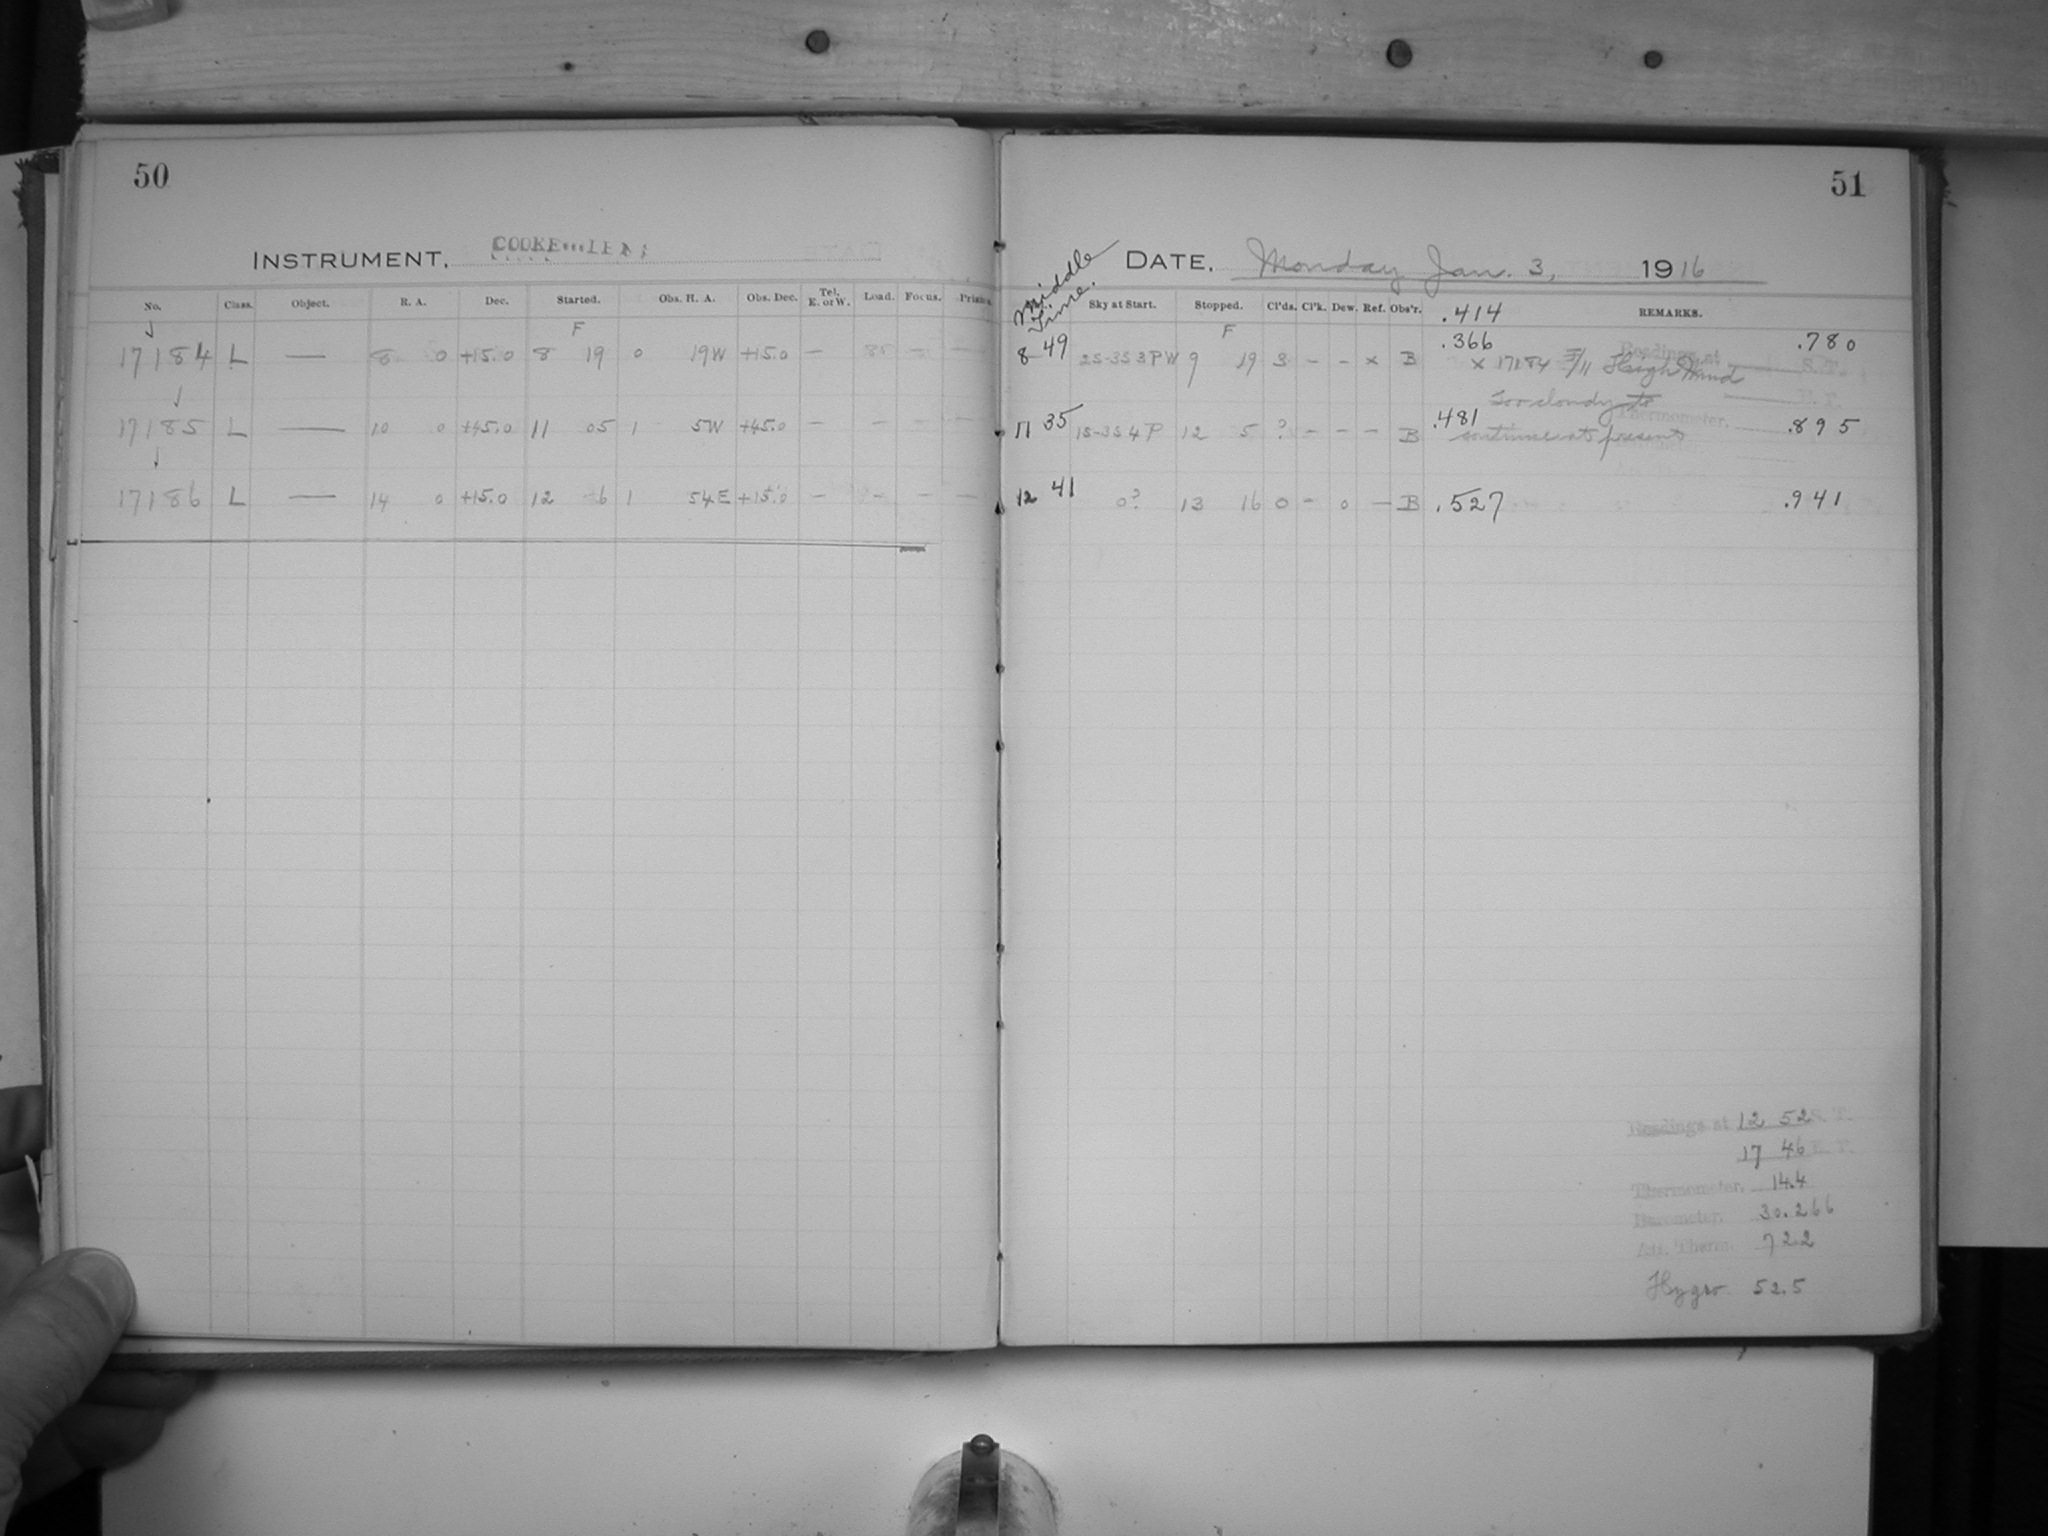 50
INSTRUMENT. COOKE
No. Class. Object. R. A. Dec. Started. Obs. H. A. Obs. Dec. Tel. E. or W. Load. Focus. Prism
F
17184 L — 8 0 +15.0 8 19 0 19W +15.0 — — —
17185 L — 10 0 +45.0 11 05 1 5W +45.0 — — — —
17186 L — 14 0 +15.0 12 16 1 54E +15.0 — — — —
51
DATE. Monday Jan. 3, 1916
Middle Time. Sky at Start. Stopped. Cl'ds. Cl'k. Dew. Ref. Obs'r. .414 REMARKS.
F .366 .780
8 49 2S-3S 3PW 9 19 3 – – x B x 17184 High Wind
Readings at S. T.
Too cloudy to
11 35 1S-3S 4P 12 5 ? – – – B .481 continue at present .895
Thermometer.
12 41 0? 13 16 0 – 0 – B .527 .941
Readings at 12 52 S. T.
17 46 E. T.
Thermometer. 14.4
Barometer. 30.266
Att. Therm. 72.2
Hygro. 52.5